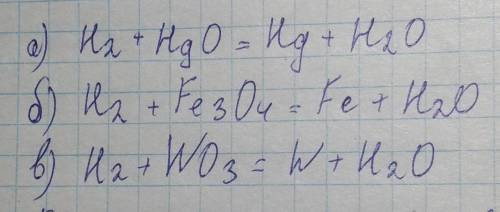 а) H2 + HgO = Hg + H2O
б) H2 + Fe3O4 = Fe + H2O
в) H2 + WO3 = W + H2O